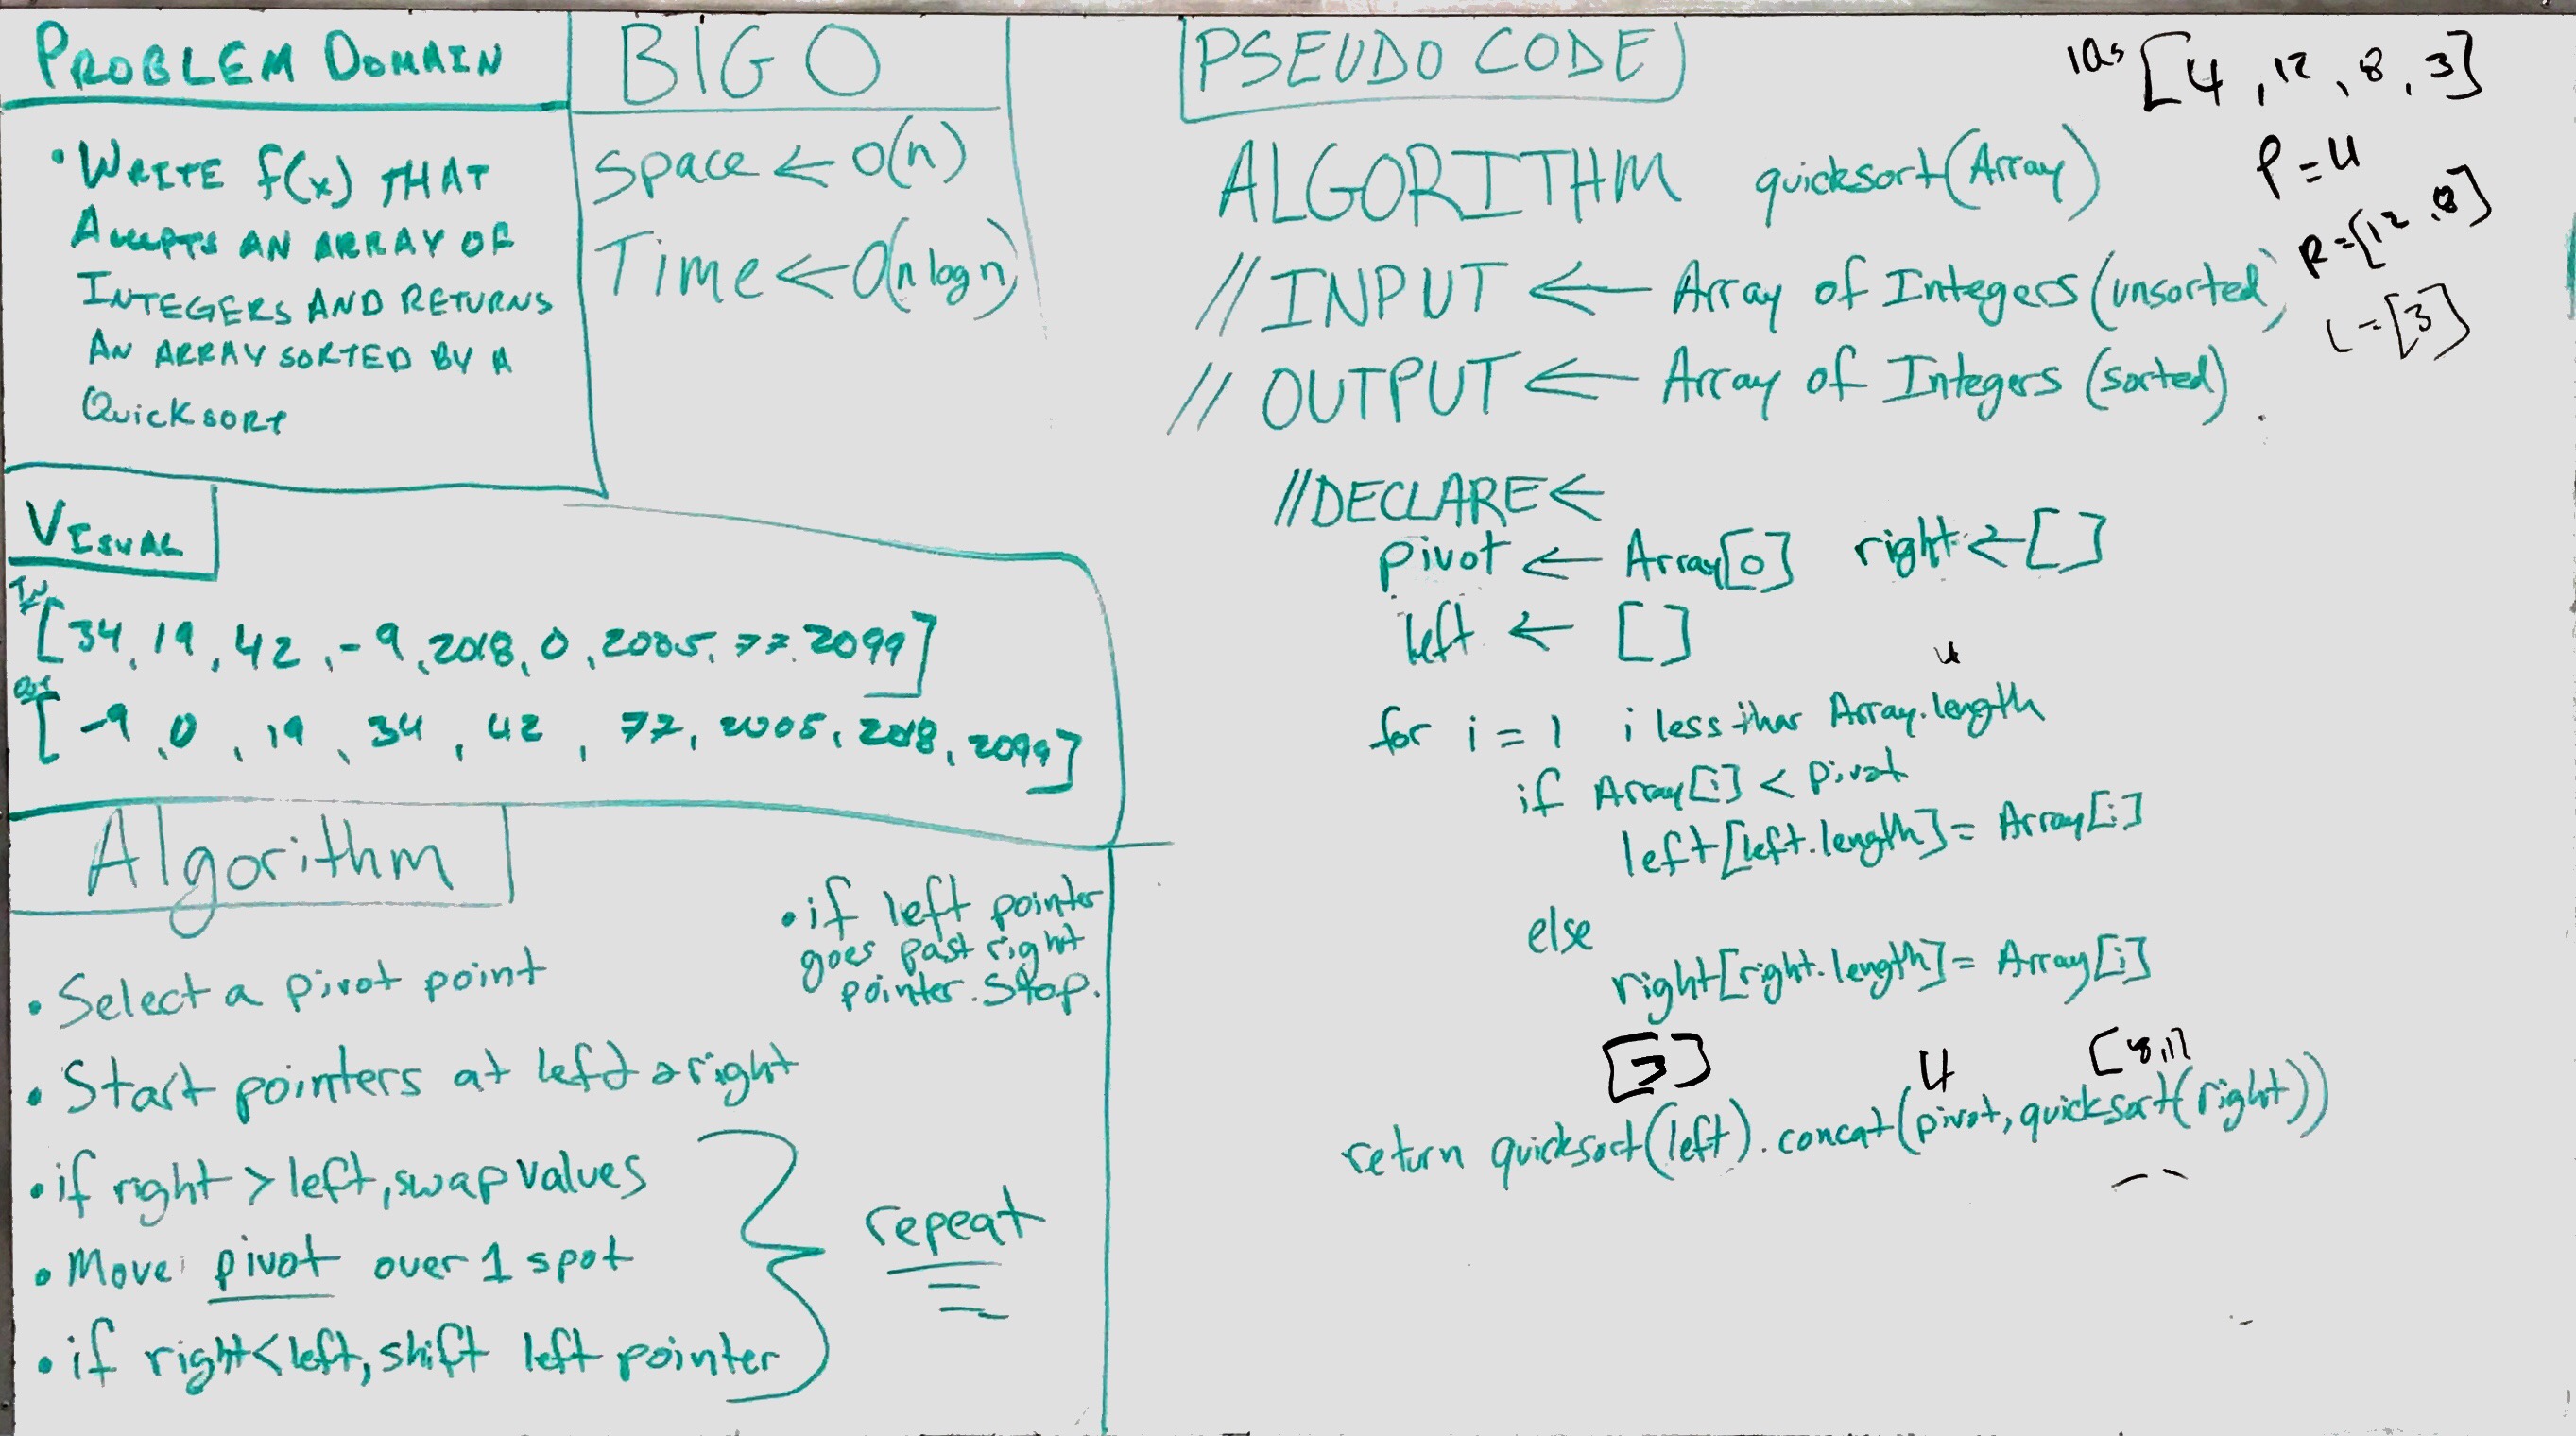 PROBLEM DOMAIN
• WRITE f(x) THAT
ACCEPTS AN ARRAY OF
INTEGERS AND RETURNS
AN ARRAY SORTED BY A
QUICKSORT
BIG O
Space ← O(n)
Time ← O(n log n)
VISUAL
IN
[34, 19, 42, -9, 2018, 0, 2005, 77, 2099]
OUT
[-9, 0, 19, 34, 42, 77, 2005, 2018, 2099]
Algorithm
• Select a pivot point
• Start pointers at left & right
• if right > left, swap values
• Move pivot over 1 spot
• if right < left, shift left pointer
repeat
• if left pointer
goes past right
pointer. Stop.
PSEUDO CODE
ALGORITHM quicksort(Array)
// INPUT ← Array of Integers (unsorted)
// OUTPUT ← Array of Integers (sorted)
//DECLARE ←
pivot ← Array[0] right ← []
left ← []
4
for i = 1 i less than Array.length
if Array[i] < pivot
left[left.length] = Array[i]
else
right[right.length] = Array[i]
[3] 4 [8,1]
return quicksort(left).concat(pivot, quicksort(right))
[4, 12, 8, 3]
P = 4
R = [12, 8]
L = [3]